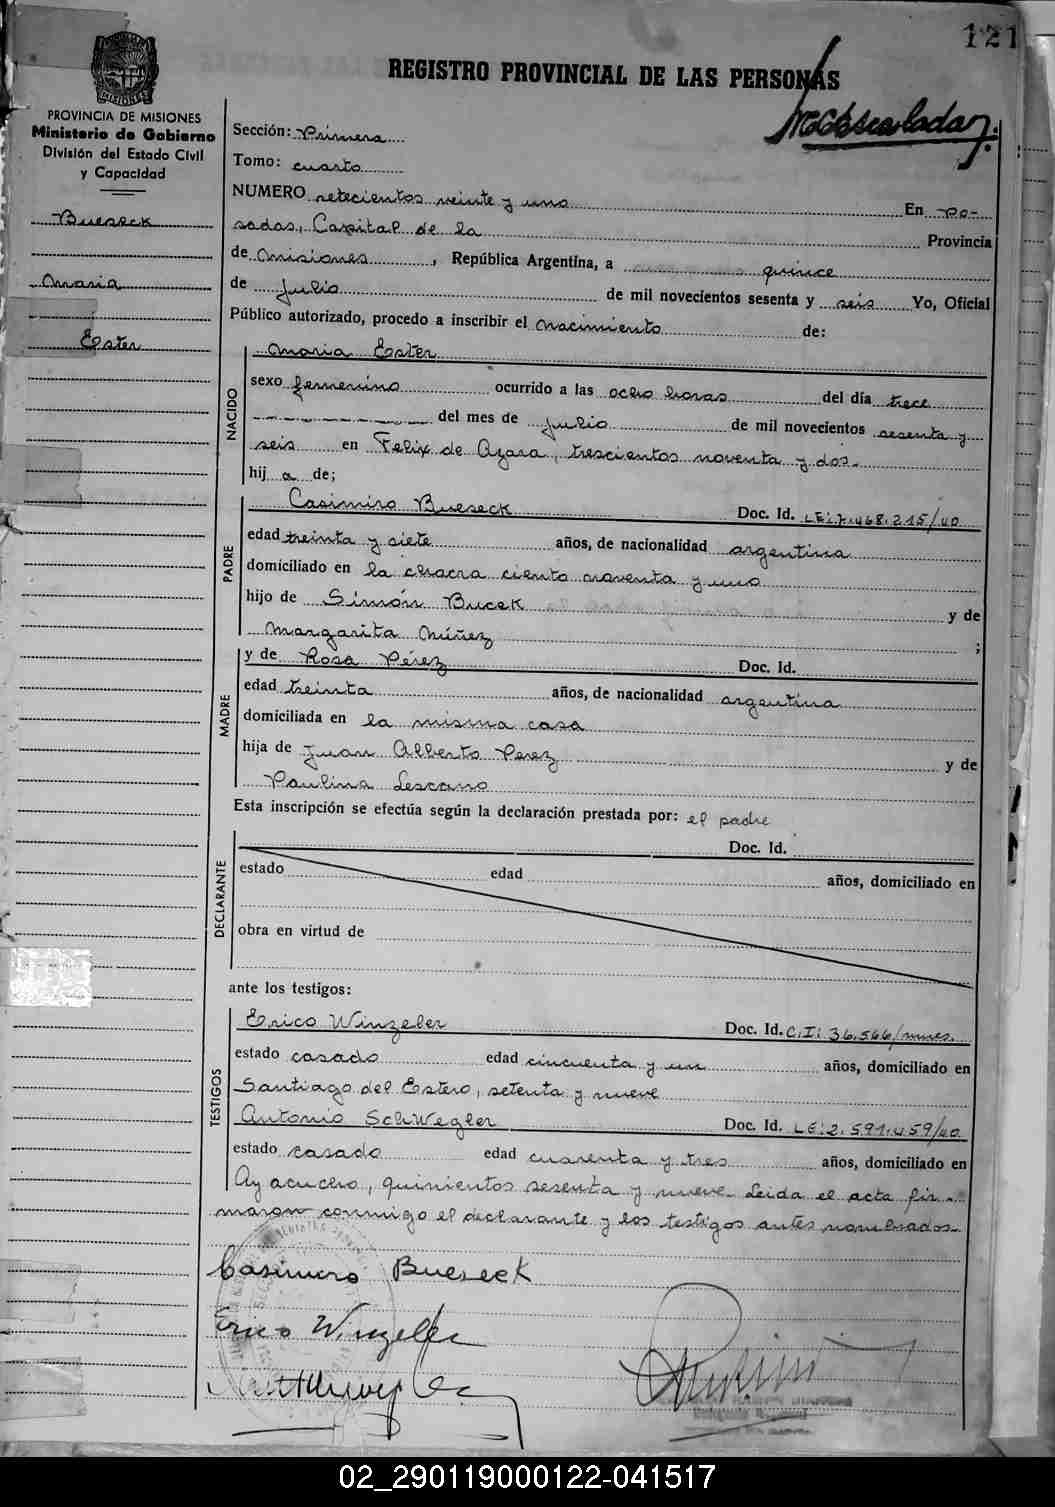 121
REGISTRO PROVINCIAL DE LAS PERSONAS
MISIONES
PROVINCIA DE MISIONES
Ministerio de Gobierno
División del Estado Civil
y Capacidad
Bueseck
Maria
Ester
Sección: Primera
Tomo: cuarto
NUMERO setecientos veinte y uno En Po-
sadas, Capital de la Provincia
de Misiones, República Argentina, a quince
de Julio de mil novecientos sesenta y seis Yo, Oficial
Público autorizado, procedo a inscribir el nacimiento de:
Maria Ester
NACIDO
sexo femenino ocurrido a las ocho horas del día trece
del mes de Julio de mil novecientos sesenta y
seis en Felix de Azara, trescientos noventa y dos.-
hij a de;
PADRE
Casimiro Bueseck Doc. Id. LE: 7.468.215/40
edad treinta y siete años, de nacionalidad argentina
domiciliado en la chacra ciento noventa y uno
hijo de Simón Bucek y de
Margarita Núñez ;
MADRE
y de Rosa Pérez Doc. Id.
edad treinta años, de nacionalidad argentina
domiciliada en la misma casa
hija de Juan Alberto Perez y de
Paulina Lescano
Esta inscripción se efectúa según la declaración prestada por: el padre
DECLARANTE
Doc. Id.
estado edad años, domiciliado en
obra en virtud de
ante los testigos:
TESTIGOS
Erico Winzeler Doc. Id. C.I: 36.566/mnes.
estado casado edad cincuenta y un años, domiciliado en
Santiago del Estero, setenta y nueve
Antonio SchWegler Doc. Id. LE: 2.591.459/40
estado casado edad cuarenta y tres años, domiciliado en
Ayacucho, quinientos sesenta y nueve. Leida el acta fir-
maron conmigo el declarante y los testigos antes nombrados.-
Casimiro Bueseck
Erico Winzeler
02_290119000122-041517